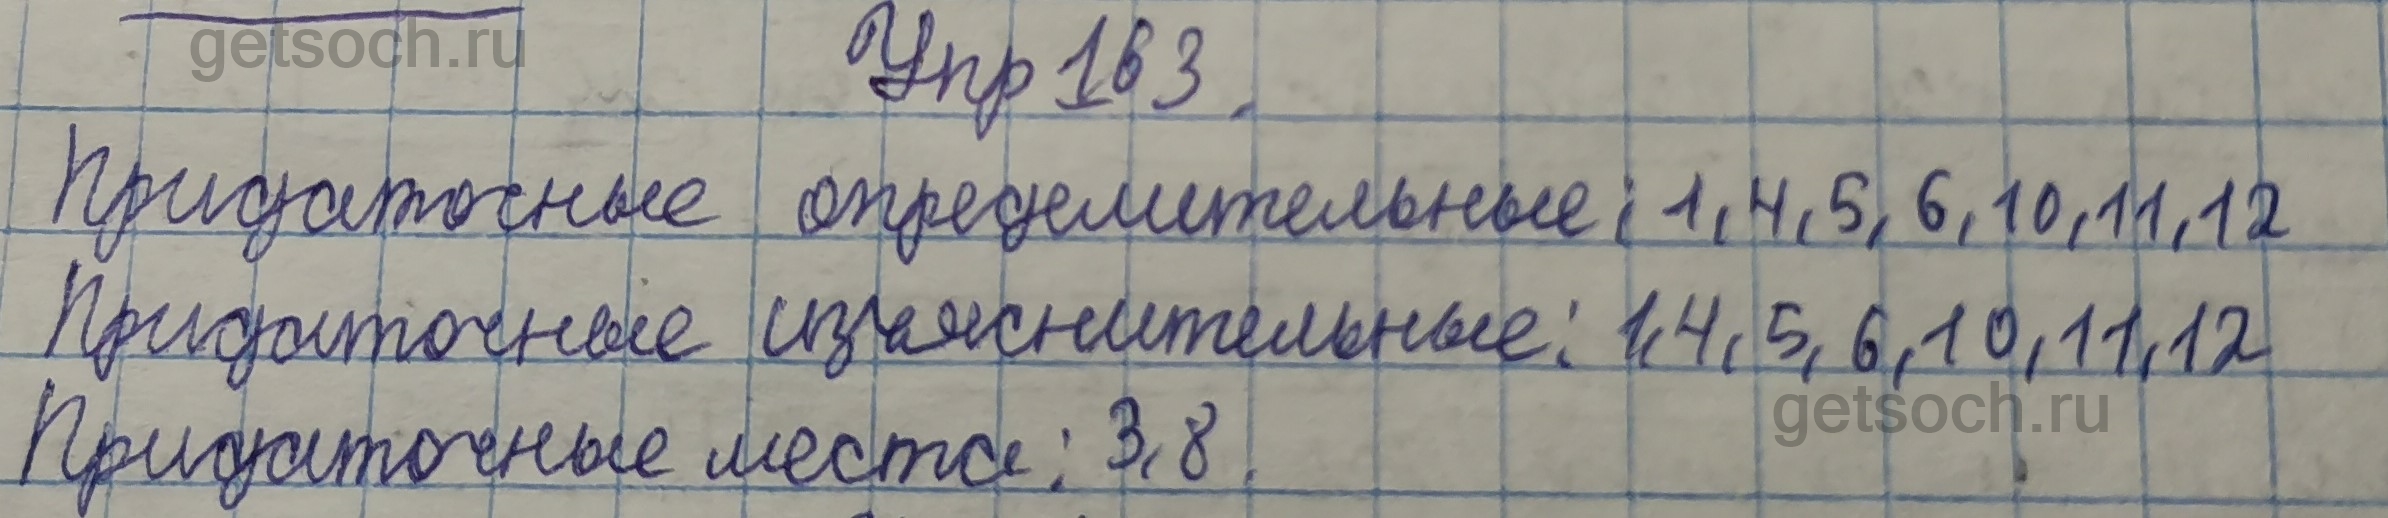 getsoch.ru
Упр 163.
Придаточные определительные: 1, 4, 5, 6, 10, 11, 12
Придаточные изъяснительные: 1, 4, 5, 6, 10, 11, 12
getsoch.ru
Придаточные места: 3, 8.